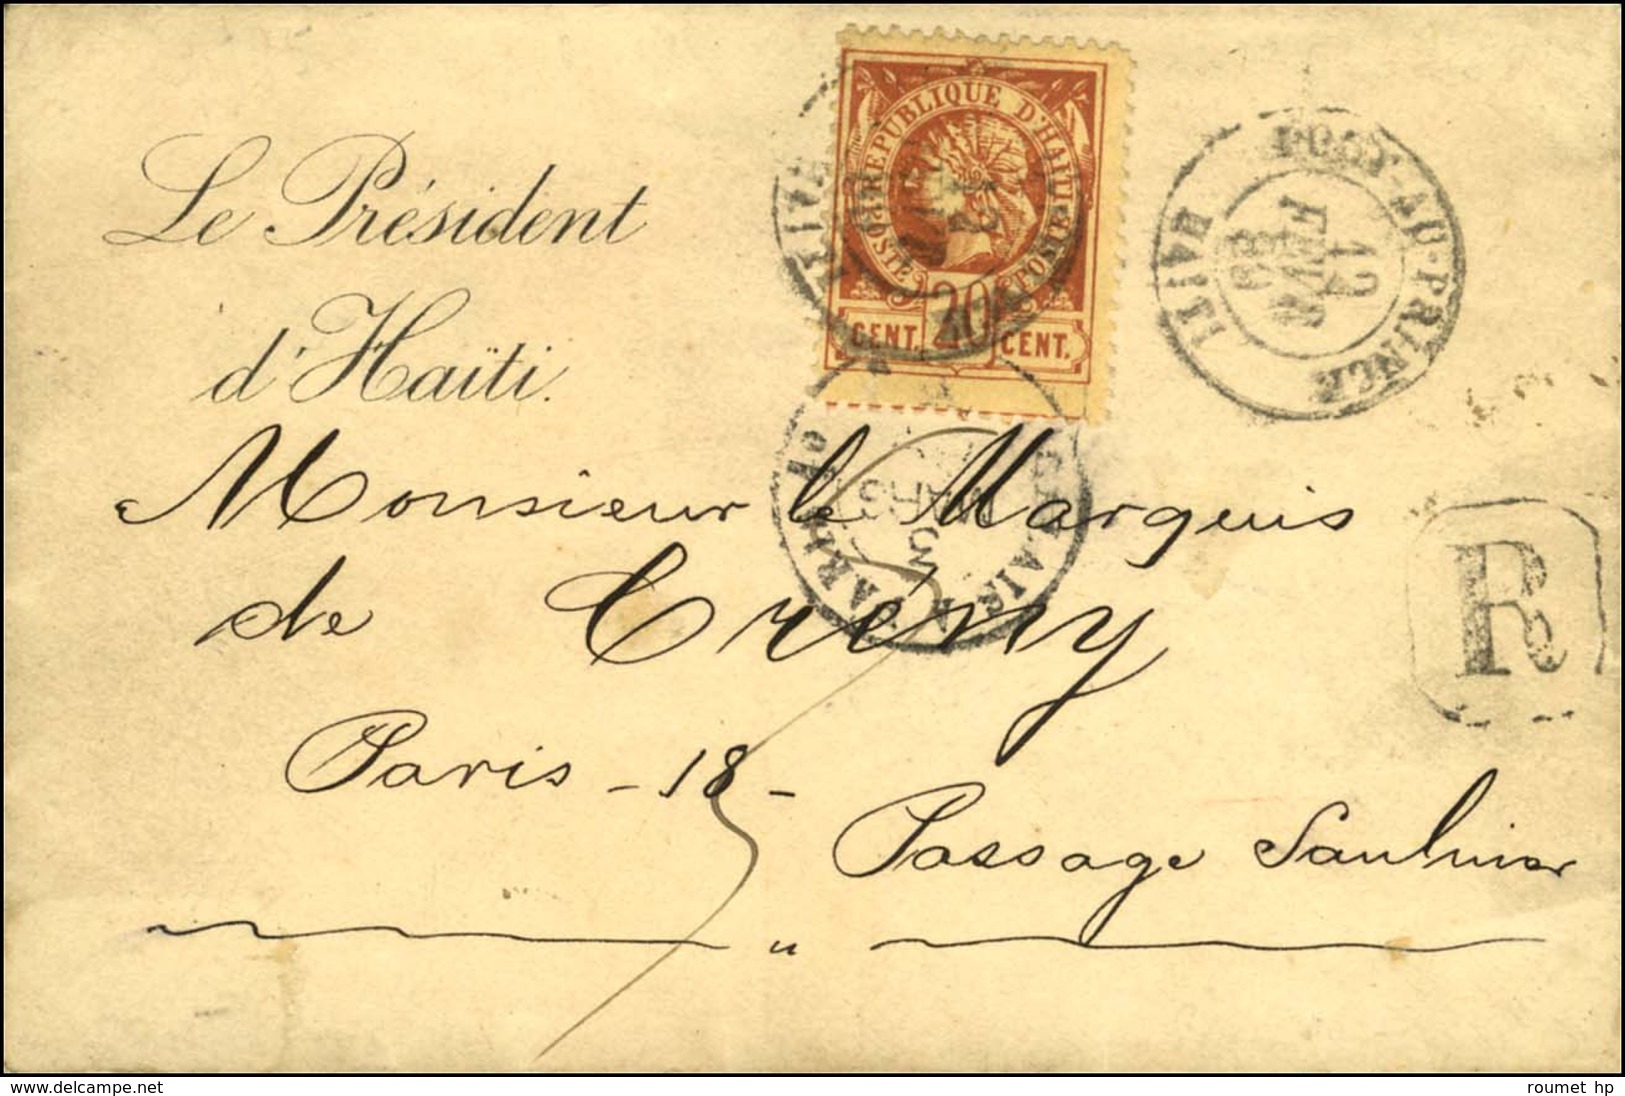 Le Président
d'Haïti.
RÉPUBLIQUE D'HAITI
POSTE
POSTE
20
CENT. CENT.
PORT-AU-PRINCE
12
FEVR
HAITI
MARS
R
Monsieur le Marquis
de Crény
Paris - 18 -
Passage Saulnier
"
www.delcampe.net
roumet hp